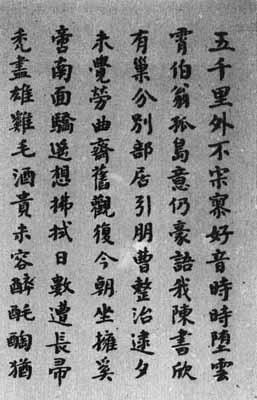 五千里外不寂寥好音時時墮雲
霄伯翁孤島意仍豪語我陳書欣
有巢分別部居引朋曹整治逮夕
未覺勞曲齋舊觀復今朝坐擁奚
啻南面驕遥想拂拭日數遭長帚
禿盡雄雞毛酒貴未容醉酕醄猶